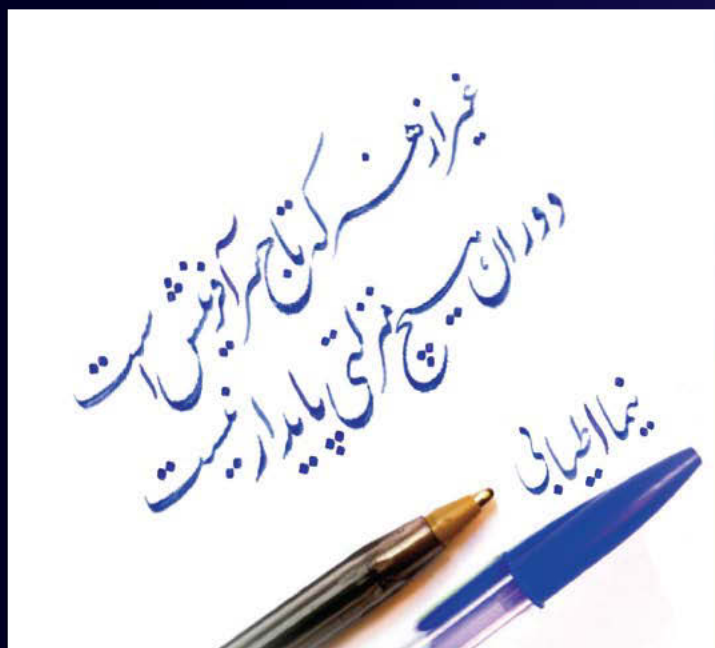 غیر از هنر که تاج سر آفرینش است
دوران هیچ منزلتی پایدار نیست
نیما اطیابی